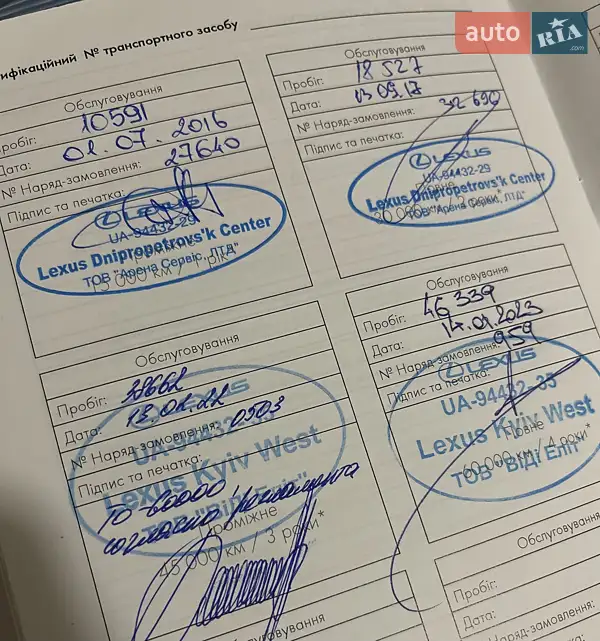 auto RIA.com
ифікаційний № транспортного засобу
Обслуговування
Пробіг: 10591
Дата: 01.07.2016
№ Наряд-замовлення: 27640
Підпис та печатка:
LEXUS
UA-94432-29
Lexus Dnipropetrovs'k Center
ТОВ "Арена Сервіс, ЛТД"
15 000 км / 1 рік
Обслуговування
Пробіг: 18527
Дата: 03 09.17
№ Наряд-замовлення: 32690
Підпис та печатка:
LEXUS
UA-94432-29
Lexus Dnipropetrovs'k Center
ТОВ "Арена Сервіс, ЛТД"
30 000 км / 2 роки*
Обслуговування
Пробіг: 38662
Дата: 13.02.22
№ Наряд-замовлення: 0503
Підпис та печатка:
UA-94432-35
Lexus Kyiv West
ТОВ "ВІДІ Еліт"
ТО 60000
согласно регламента
Проміжне
45 000 км / 3 роки*
Обслуговування
Пробіг: 46 339
Дата: 14.01.2023
№ Наряд-замовлення: 959
Підпис та печатка:
LEXUS
UA-94432-35
Lexus Kyiv West
ТОВ "ВІДІ Еліт"
60 000 км / 4 роки*
Обслуговування
Обслуговування
Пробіг:
Дата:
№ Наряд-замовлення: